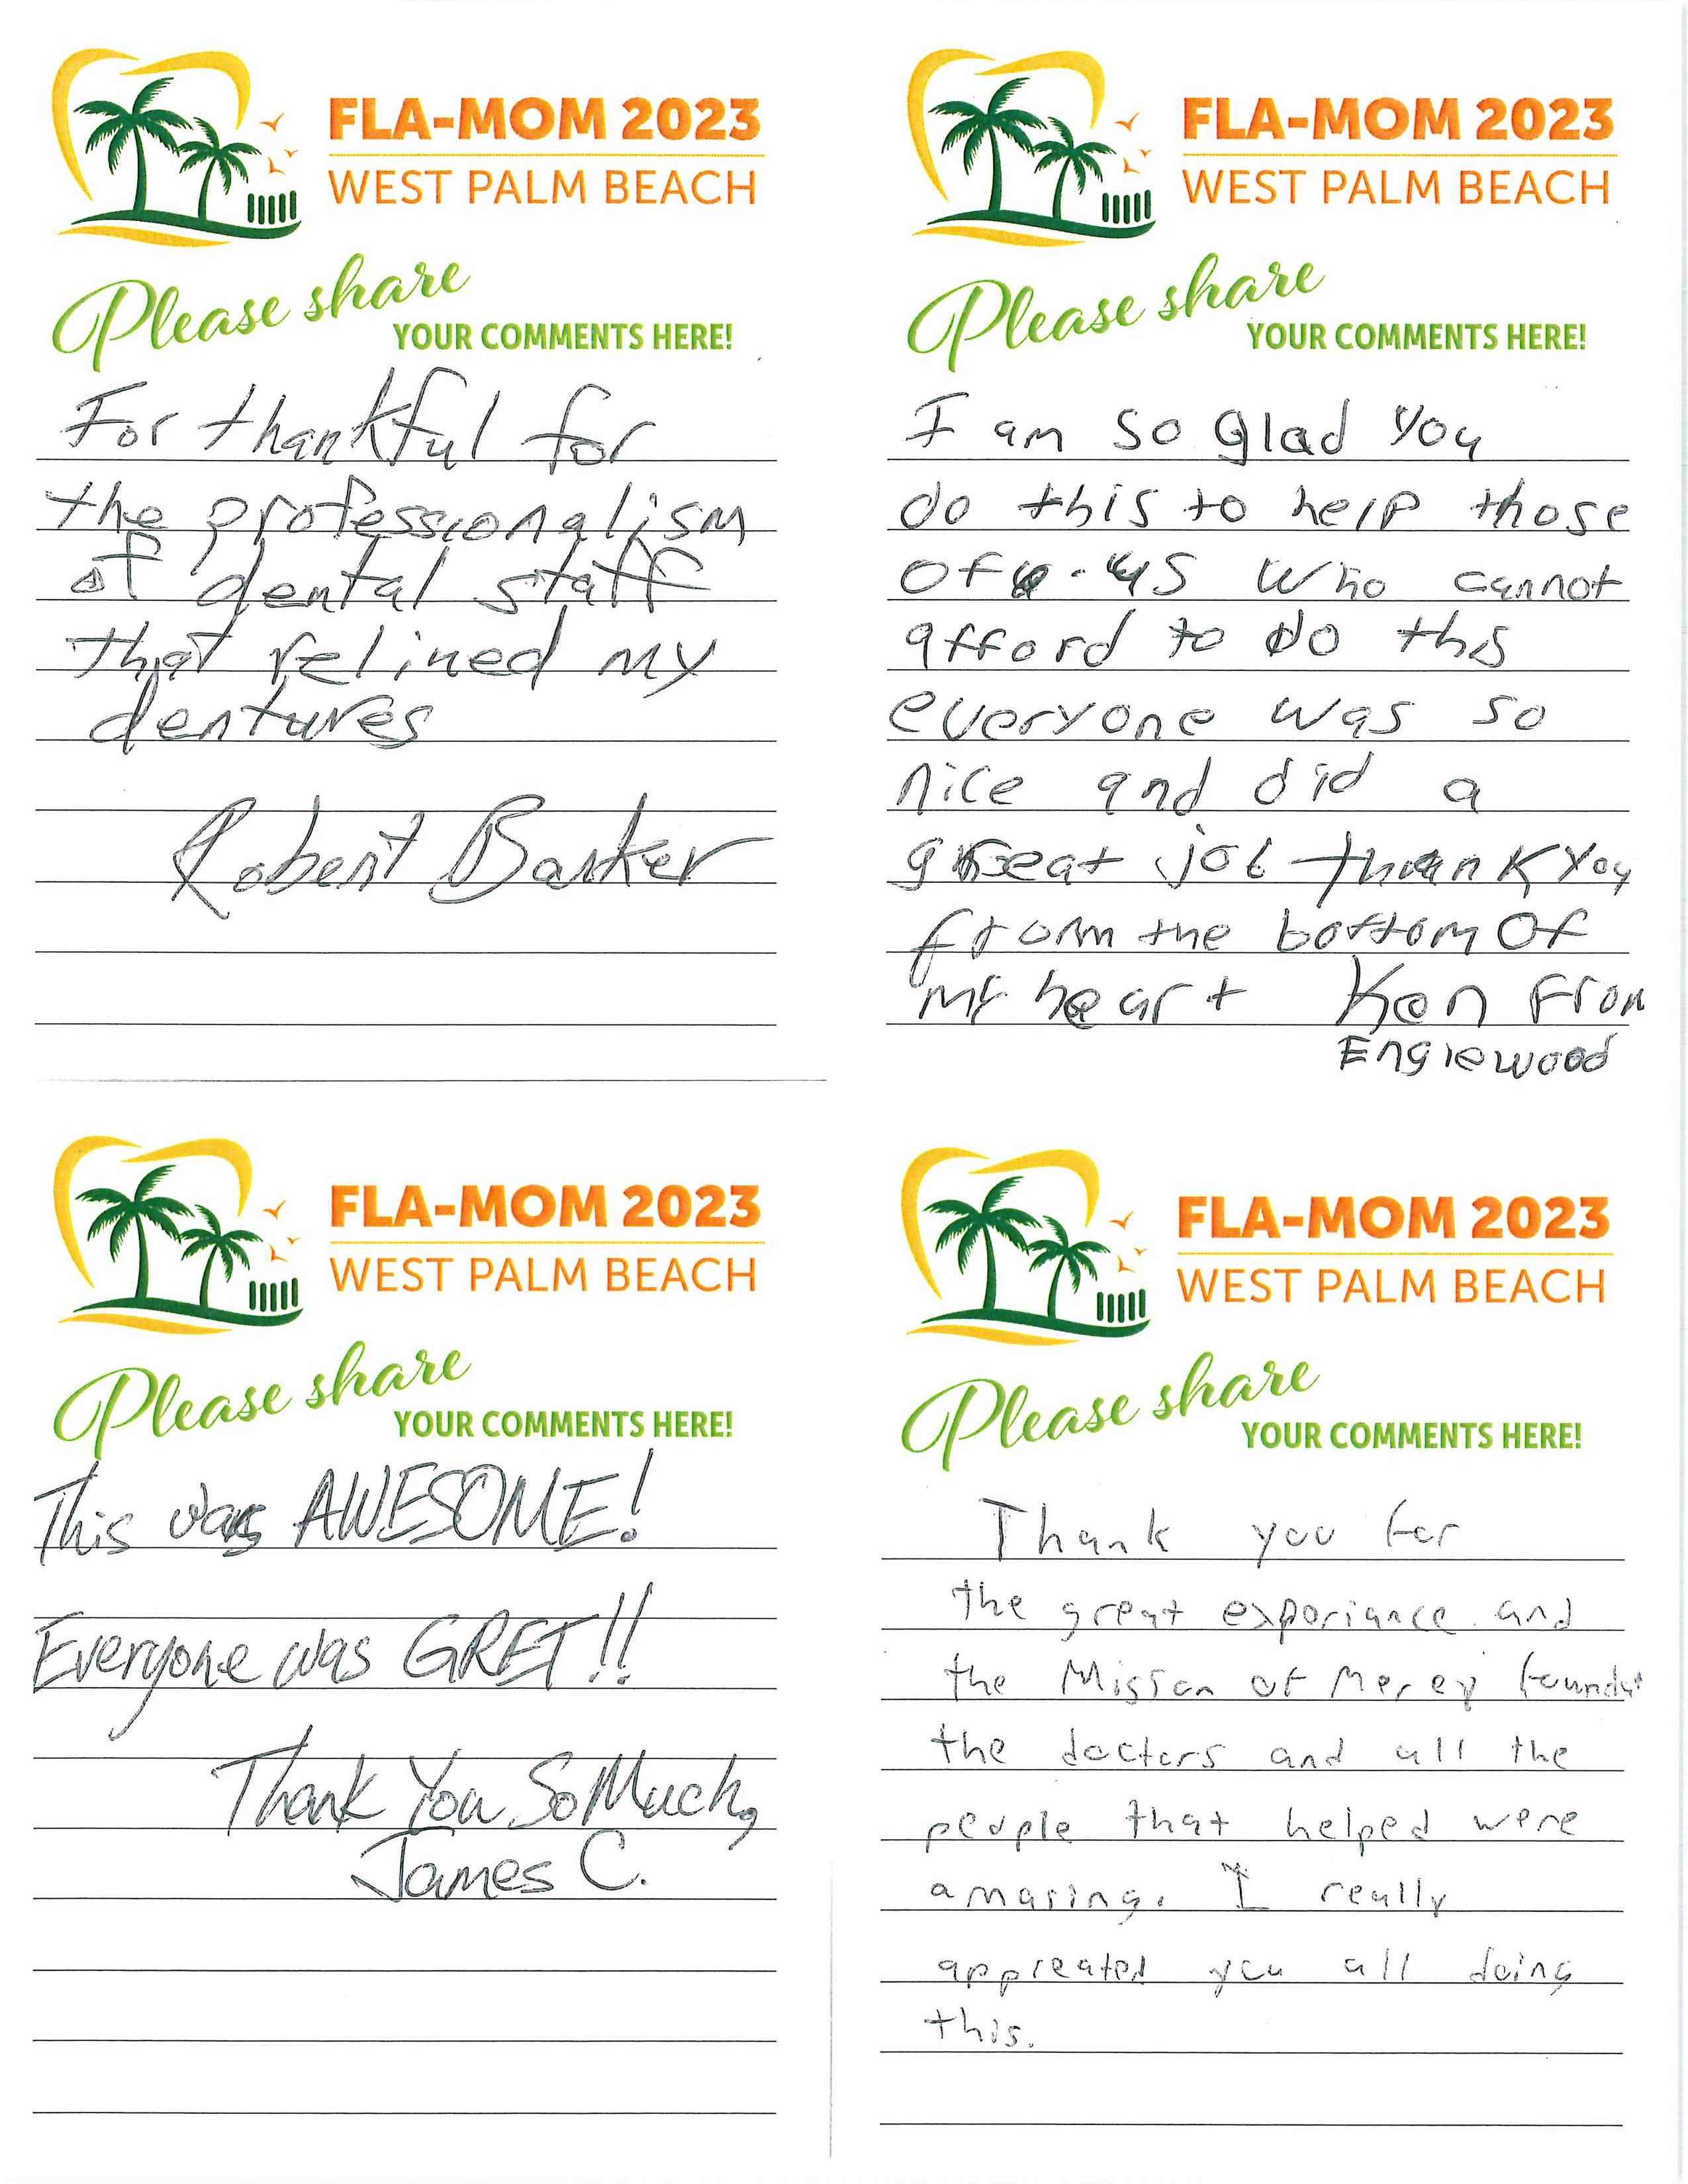 FLA-MOM 2023
WEST PALM BEACH
Please share
YOUR COMMENTS HERE!
For thankful for
the professionalism
of dental staff
that relined my
dentures
Robert Barker
FLA-MOM 2023
WEST PALM BEACH
Please share
YOUR COMMENTS HERE!
I am so glad you
do this to help those
of us who cannot
afford to do this
everyone was so
nice and did a
great job thank you
from the bottom of
my heart Ken From
Englewood
FLA-MOM 2023
WEST PALM BEACH
Please share
YOUR COMMENTS HERE!
This was AWESOME!
Everyone was GRET!!
Thank You So Much,
James C.
FLA-MOM 2023
WEST PALM BEACH
Please share
YOUR COMMENTS HERE!
Thank you for
the great experiance and
the Mission of Mercy
the doctors and all the
people that helped were
amasing. I really
appreated you all doing
this.